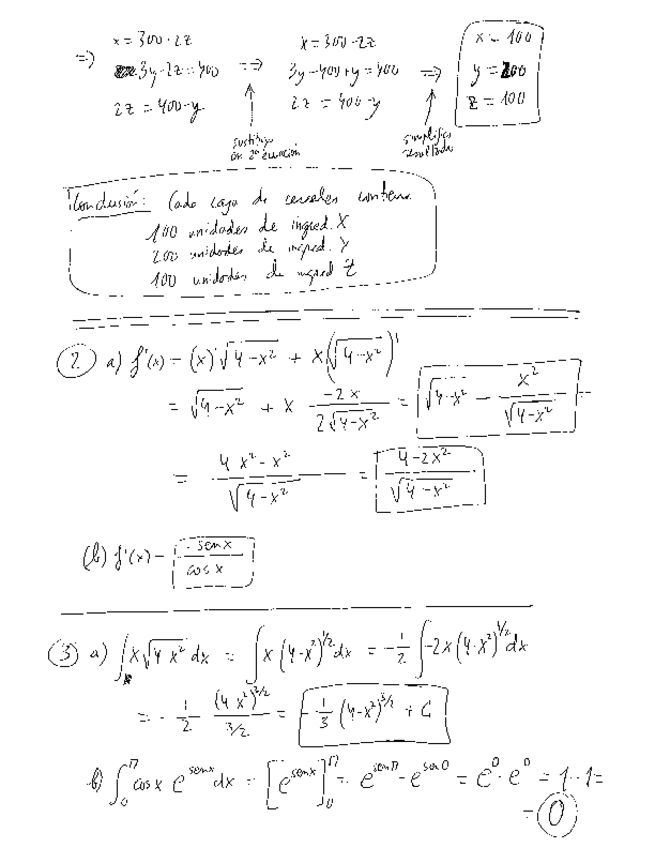 x = 300 - 2z    x = 300 - 2z    x = 100
=> 3y - 2z = 400 => 3y - 400 + y = 400 => y = 200
2z = 400 - y    2z = 400 - y    z = 100
sustituyo en 2ª ecuación    simplifico
Conclusión: Cada caja de cereales contiene
100 unidades de ingred. X
200 unidades de ingred. Y
100 unidades de ingred Z
② a) f'(x) = (x)' √(4-x²) + x(√(4-x²))'
= √(4-x²) + x (-2x)/(2√(4-x²)) = √(4-x²) - x²/√(4-x²)
= (4 x² - x²)/√(4-x²) = (4-2x²)/√(4-x²)
(b) f'(x) = -sen x / cos x
③ a) ∫ x√(4 x²) dx = ∫ x (4-x²)^(1/2) dx = -1/2 ∫ -2x (4-x²)^(1/2) dx
= -1/2 (4 x²)^(3/2) / (3/2) = -1/3 (4-x²)^(3/2) + C
b) ∫₀^π cos x e^(sen x) dx = [e^(sen x)]₀^π = e^(sen π) - e^(sen 0) = e⁰ - e⁰ = 1 - 1 =
= 0